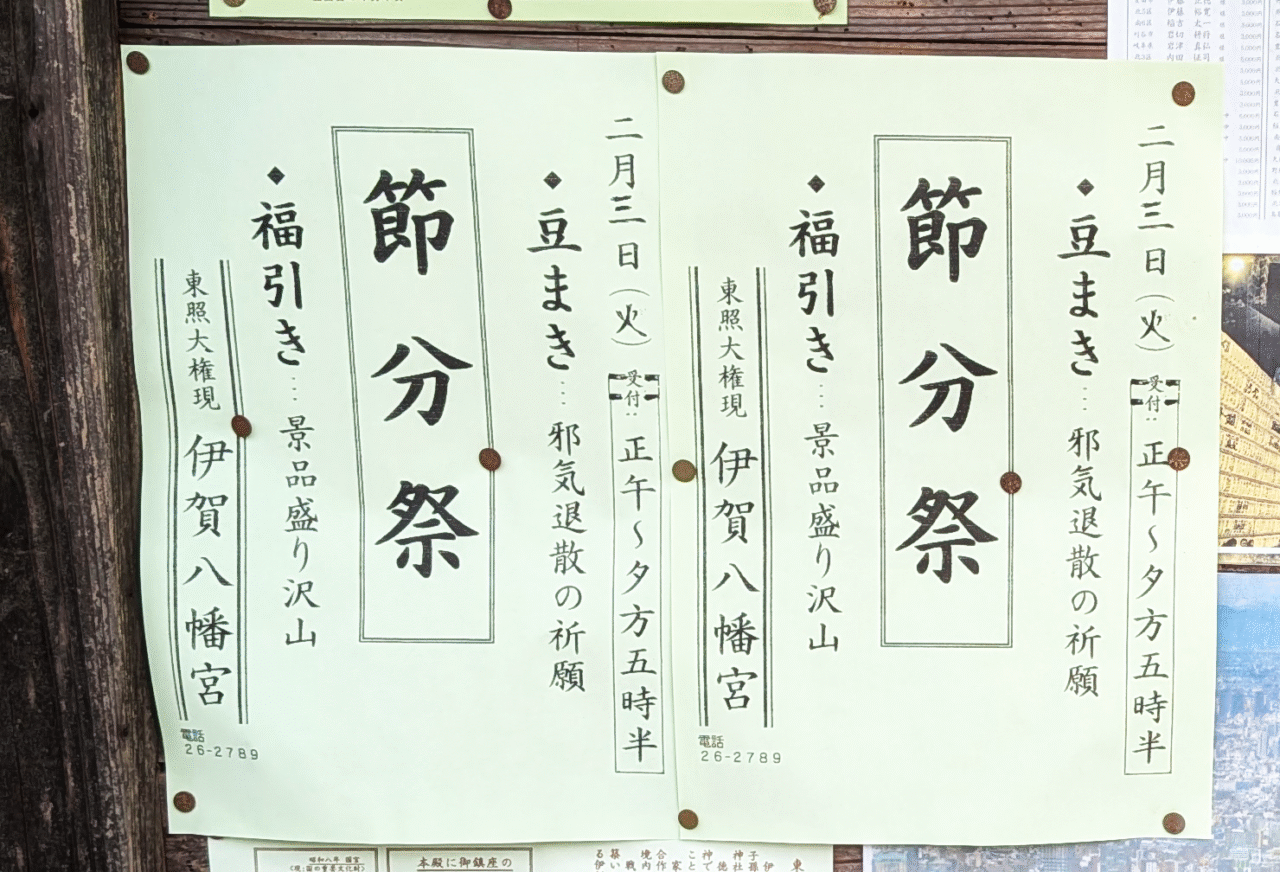 二月三日（火）
受付：正午～夕方五時半
◆豆まき…邪気退散の祈願
節分祭
◆福引き…景品盛り沢山
東照大権現 伊賀八幡宮
電話
26-2789
二月三日（火）
受付：正午～夕方五時半
◆豆まき…邪気退散の祈願
節分祭
◆福引き…景品盛り沢山
東照大権現 伊賀八幡宮
電話
26-2789
本殿に御鎮座の
昭和八年 国宝